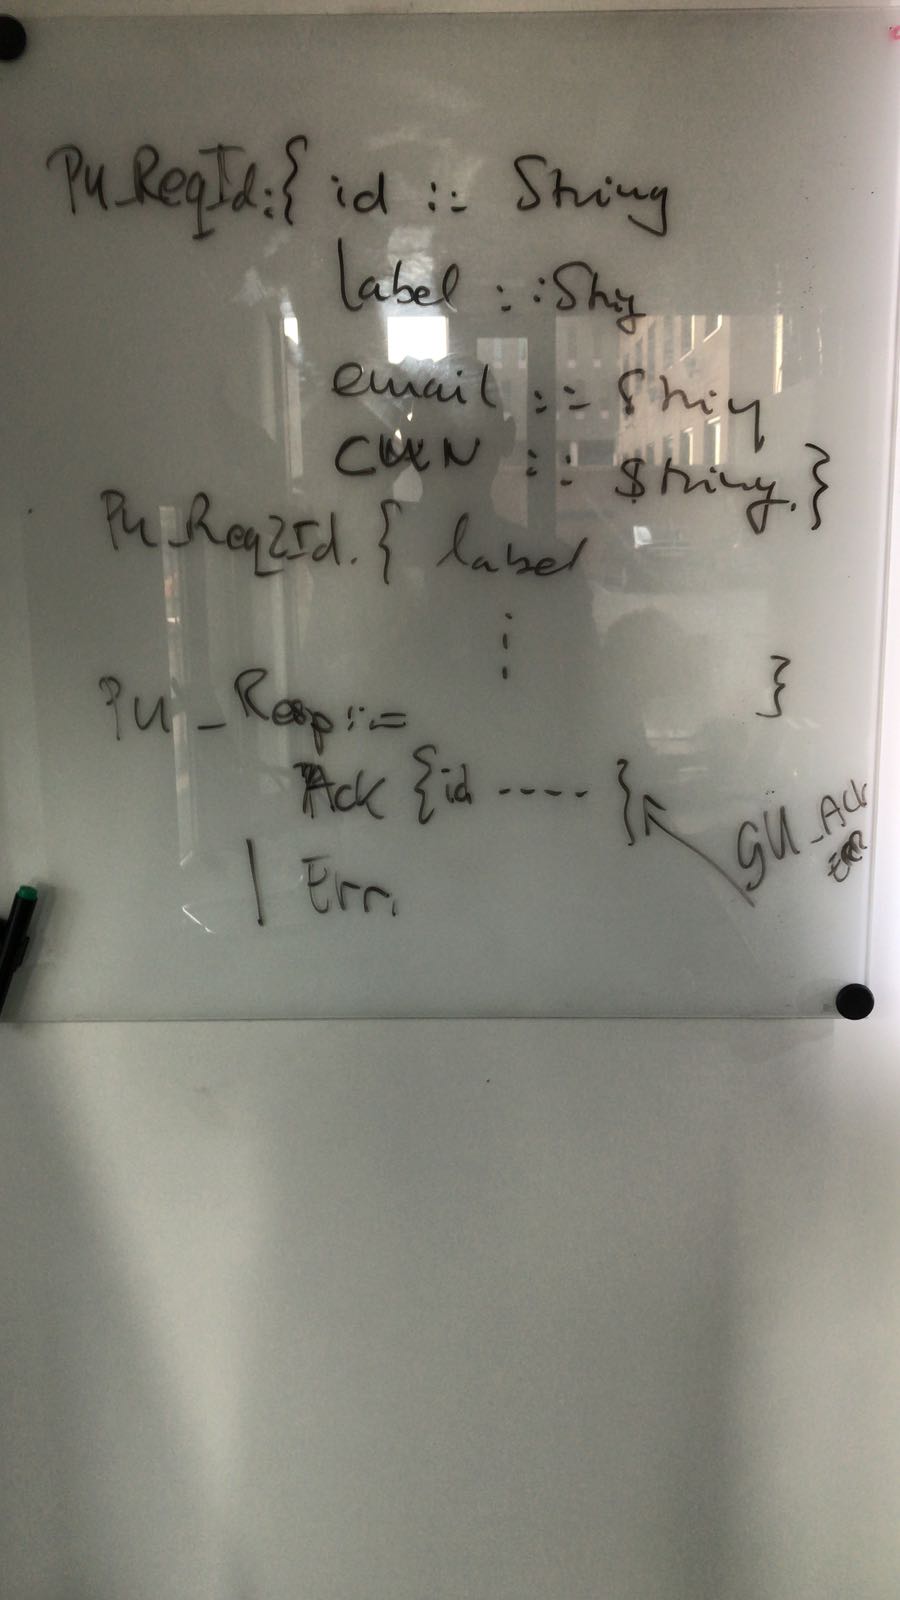 Pu_ReqId:{ id :: String
label :: String
email :: String
:: String.}
Pu_Req2Id.{ label
⋮
}
Pu_Resp ::=
Ack {id ----- }
GU_Ack
ERR
| Err.